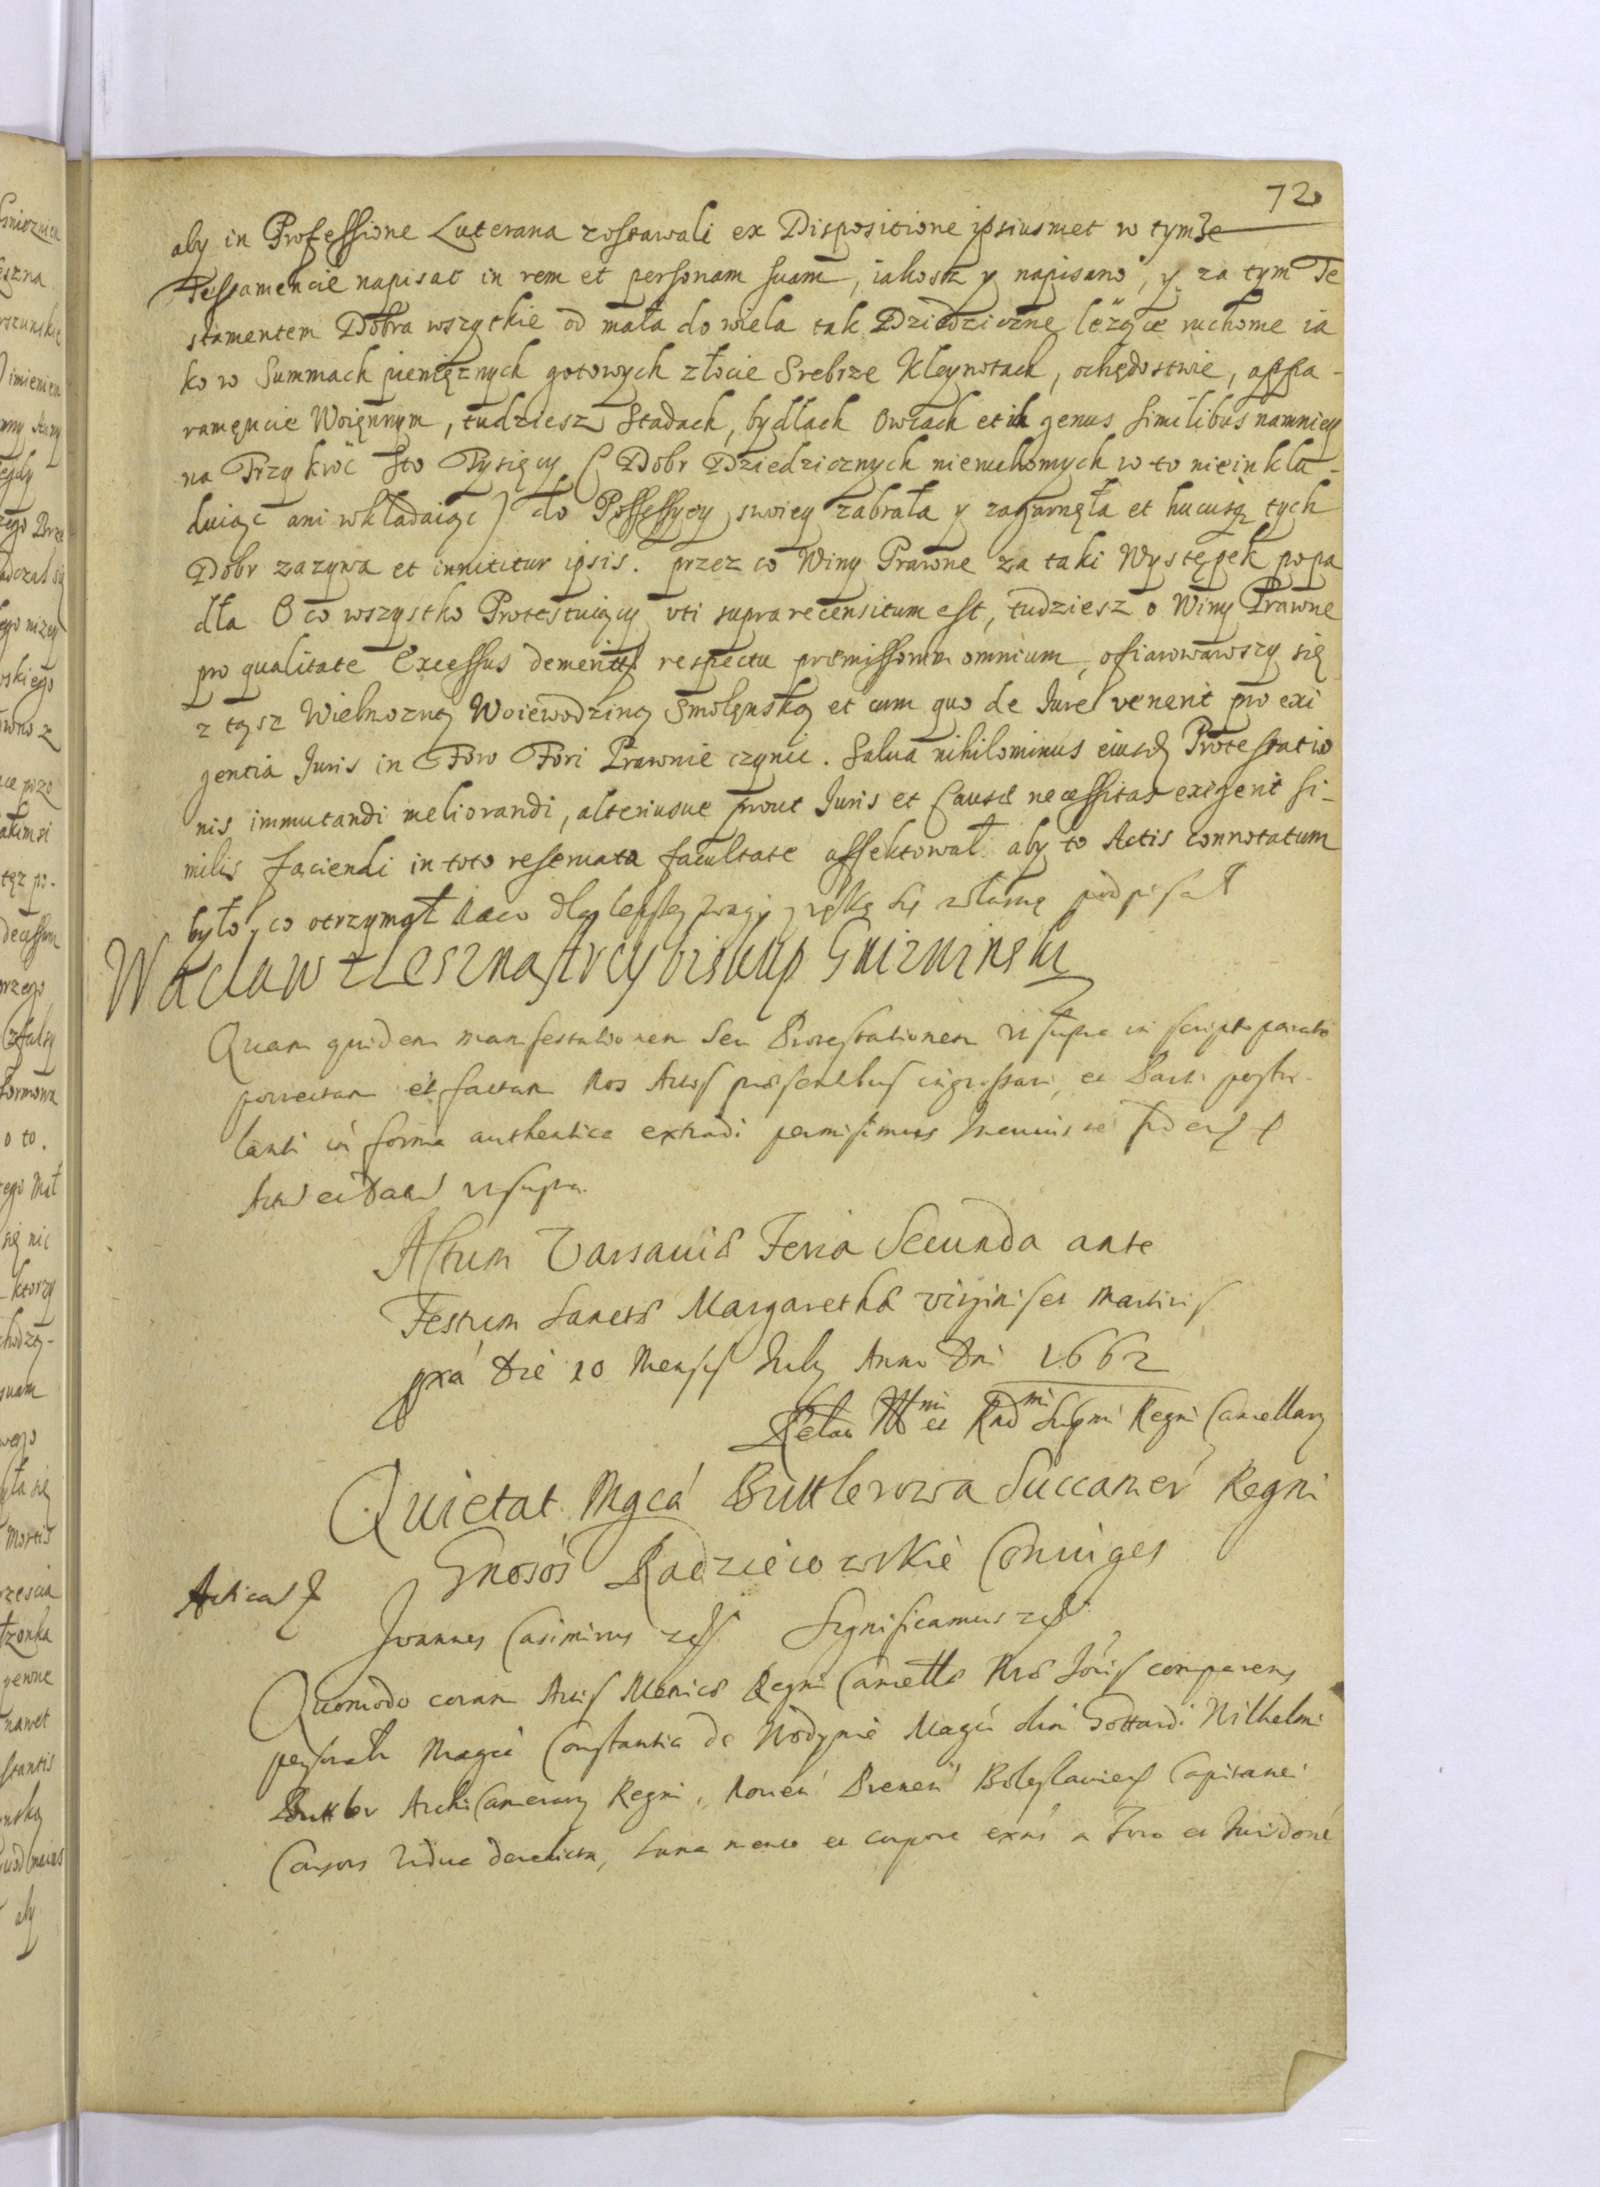 72
aby in Professione Luterana zostawali ex Dispositione ipsiusmet w tymże
Testamencie napisać in rem et personam suam, iakosz y napisano, y za tym Te
stamentem Dobra wszytkie od mała do wiela tak Dziedziczne leżące ruchome ia
ko w Summach pieniężnych gotowych złocie Srebrze Kleynotach, ochędostwie, appa-
ramęncie Woięnnym, tudziesz Stadach, bydłach Owcach et in genus similibus namniey
na Trzykroć sto Tysięcy (Dobr Dziedzicznych nieruchomych w to nie inklu-
duiąc ani wkładaiąc) do Possessyey swoiey zabrała y zagarnęła et hucusq tych
Dobr zazywa et innititur ipsis. przez co Winy Prawne za taki Występek popa
dła O co wszystko Protestuiący uti supra recensitum est, tudziesz o Winy Prawne
pro qualitate Excessus demeritæ respectu præmissorum omnium, ofiarowawszy się
z tąsz Wielmozną Woiewodziną Smolęnską et cum quo de Jure venerit pro exi
gentia Juris in Foro Fori Prawnie czynić. Salva nihilominus eiusd Protestatio
nis immutandi meliorandi, alteriusve prout Juris et Causæ necessitas exigerit si-
milis faciendi in toto reservata facultate affektował aby to Actis connotatum
było, co otrzymał na co dla lepszey wagi ręką się własną podpisał
Wacław z Leszna Arcybiskup Gniezninski
Quam quidem manifestationem seu Protestationem ut supra in scripto parato
porrectam et factam Nos Actis præsentibus ingrossari, et Parti postu-
lanti in forma authentica extradi permisimus In cuius rei fidem
Actum et Datum ut supra.
Actum Varsaviæ Feria Secunda ante
Festum Sanctæ Margarethæ virginis et Martiris
pxa Die 10 Mensis July Anno Dni 1662
Relao Illmi et Rndmi Supmi Regni Cancellarij
Quietat Mgca Buttlerowa Succamer Regni
Gnosos Radzieiowskie Coniuges
Joannes Casimirus Significamus
Quomodo coram Actis Metrices Regni Cancellæ Nræ Maioris comparens
personaliter Magca Constantia de Wodynie Magci olim Gottardi Wilhelmi
Buttler Archi Camerarij Regni, Preneń Boleslavien Capitanei
Consors Vidua derelicta, sana mente et corpore exns a Foro et Jurisdone